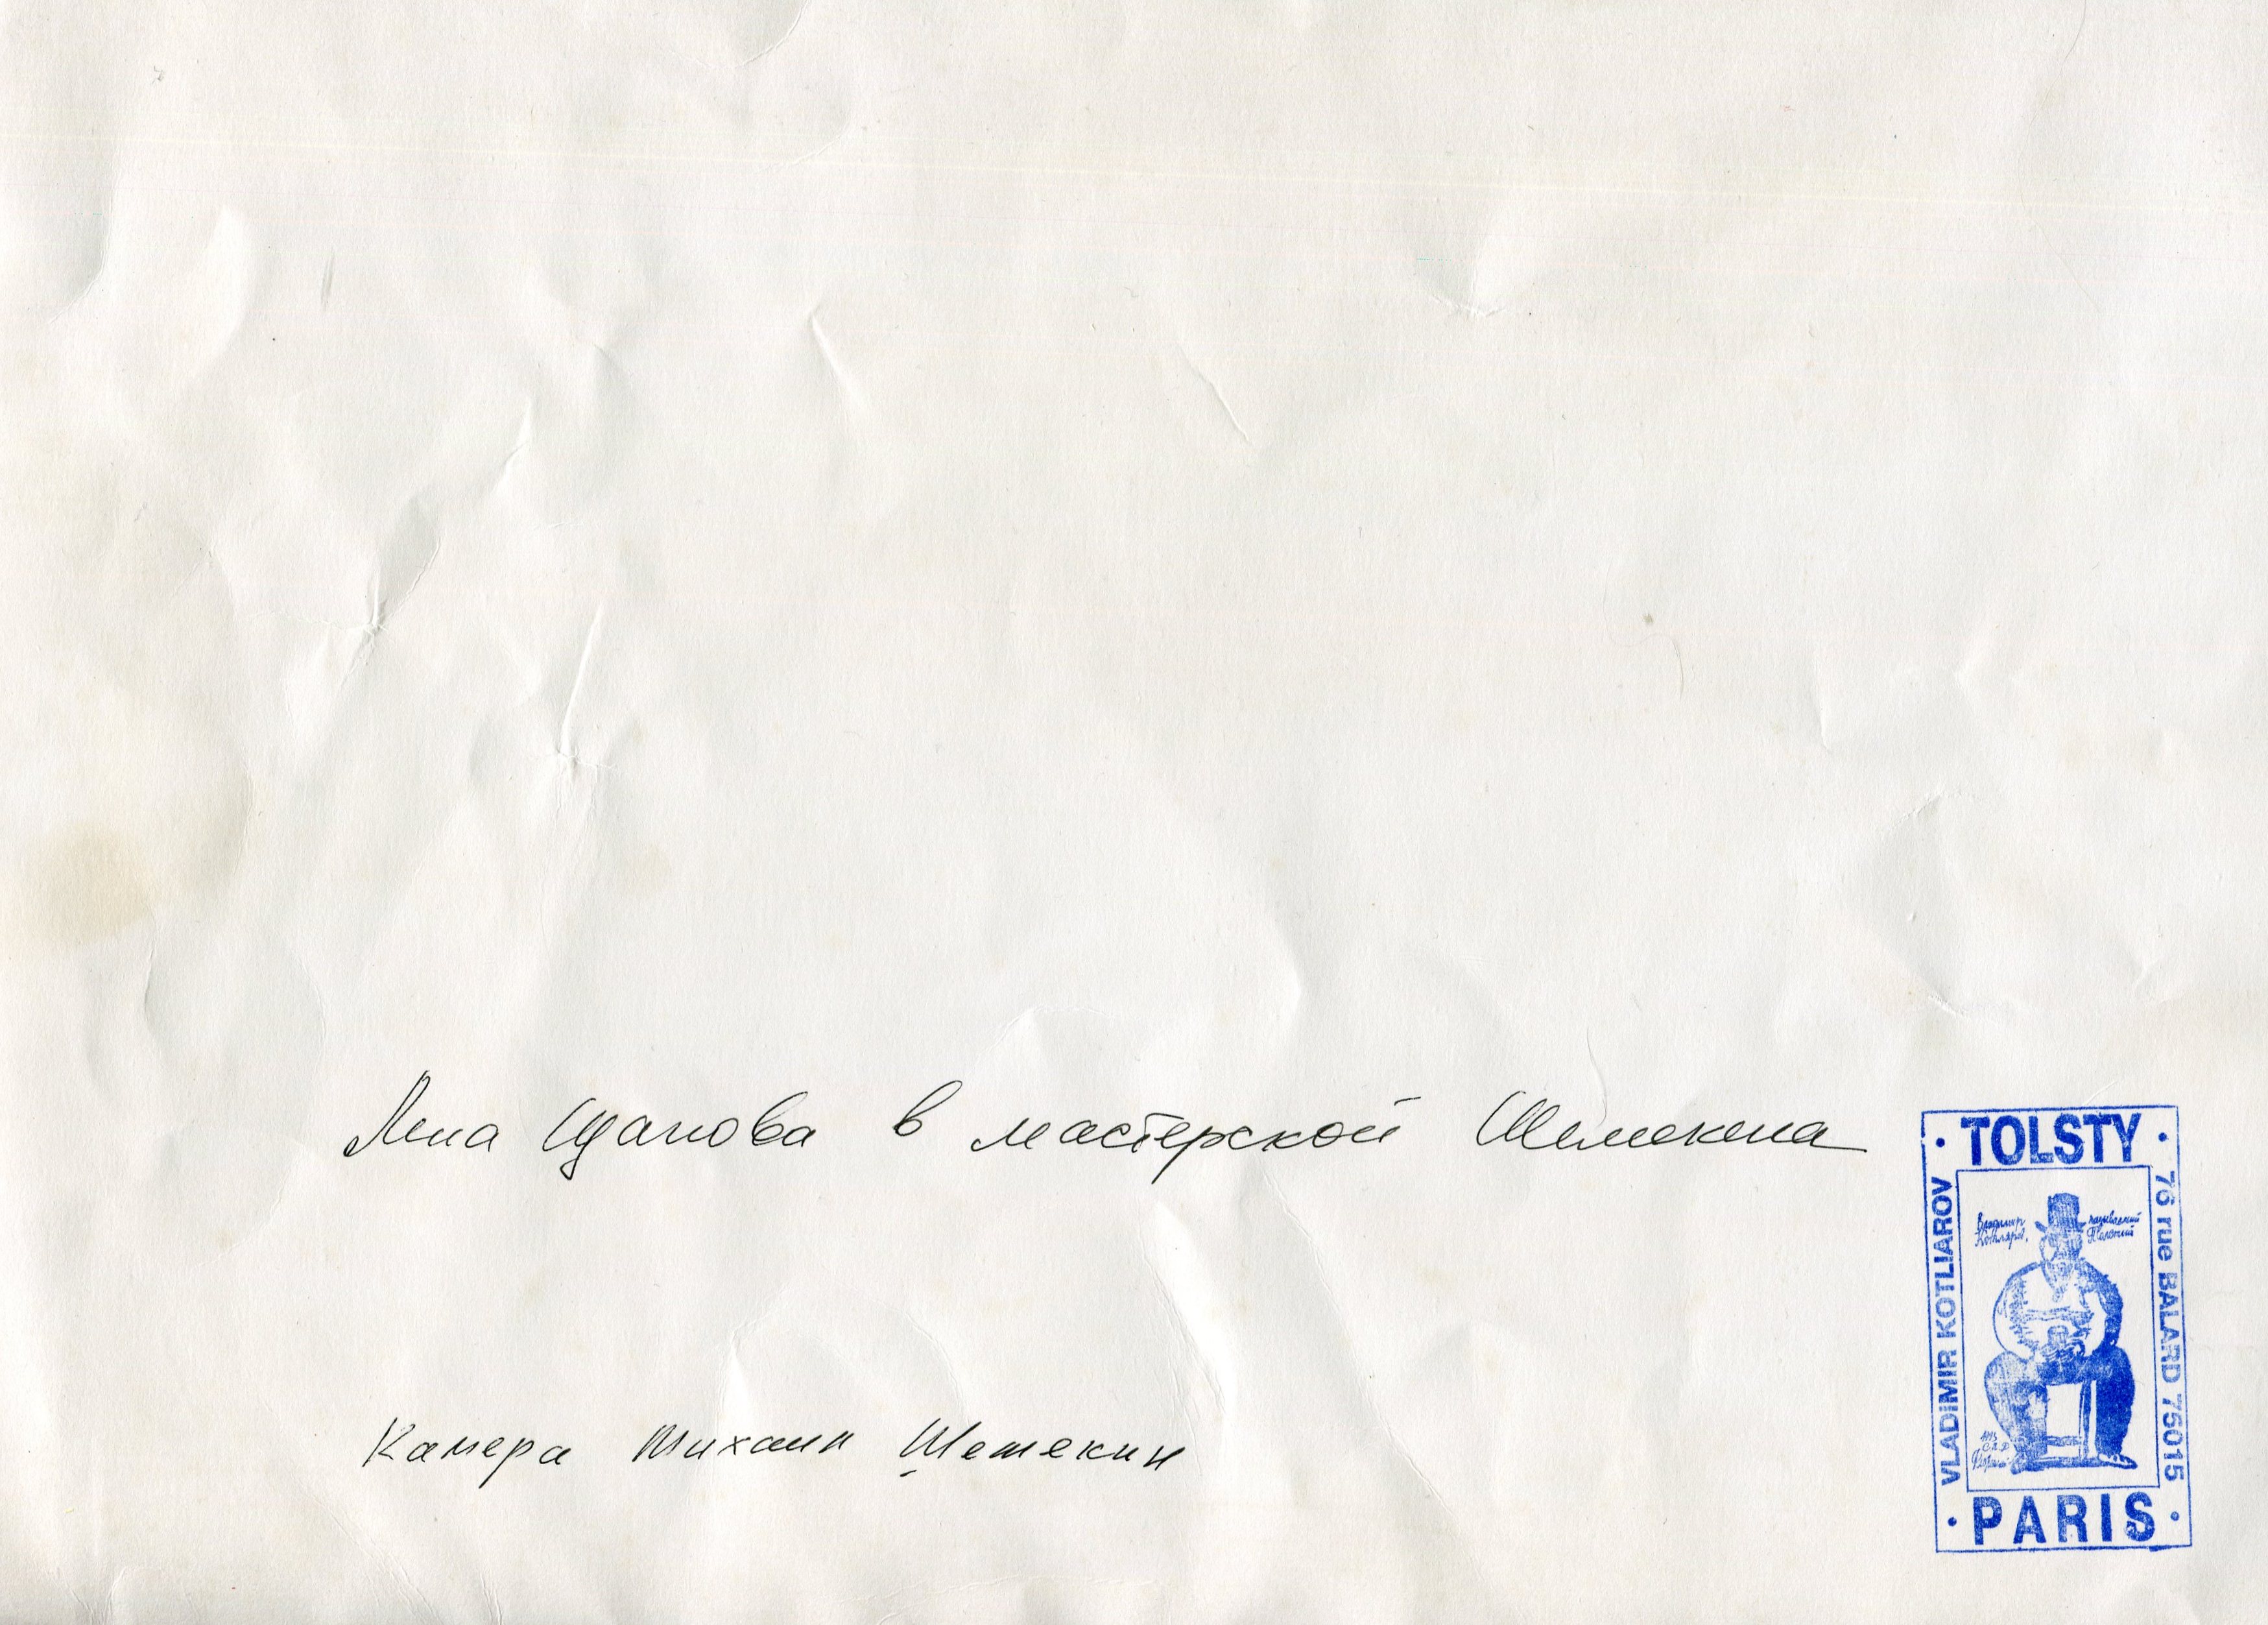 Лена Щапова в мастерской Шемякина
Камера Михаил Шемякин
· TOLSTY ·
VLADIMIR KOTLIAROV
76 rue BALARD 75015
Владимир
Котляров,
называемый
Толстый
· PARIS ·